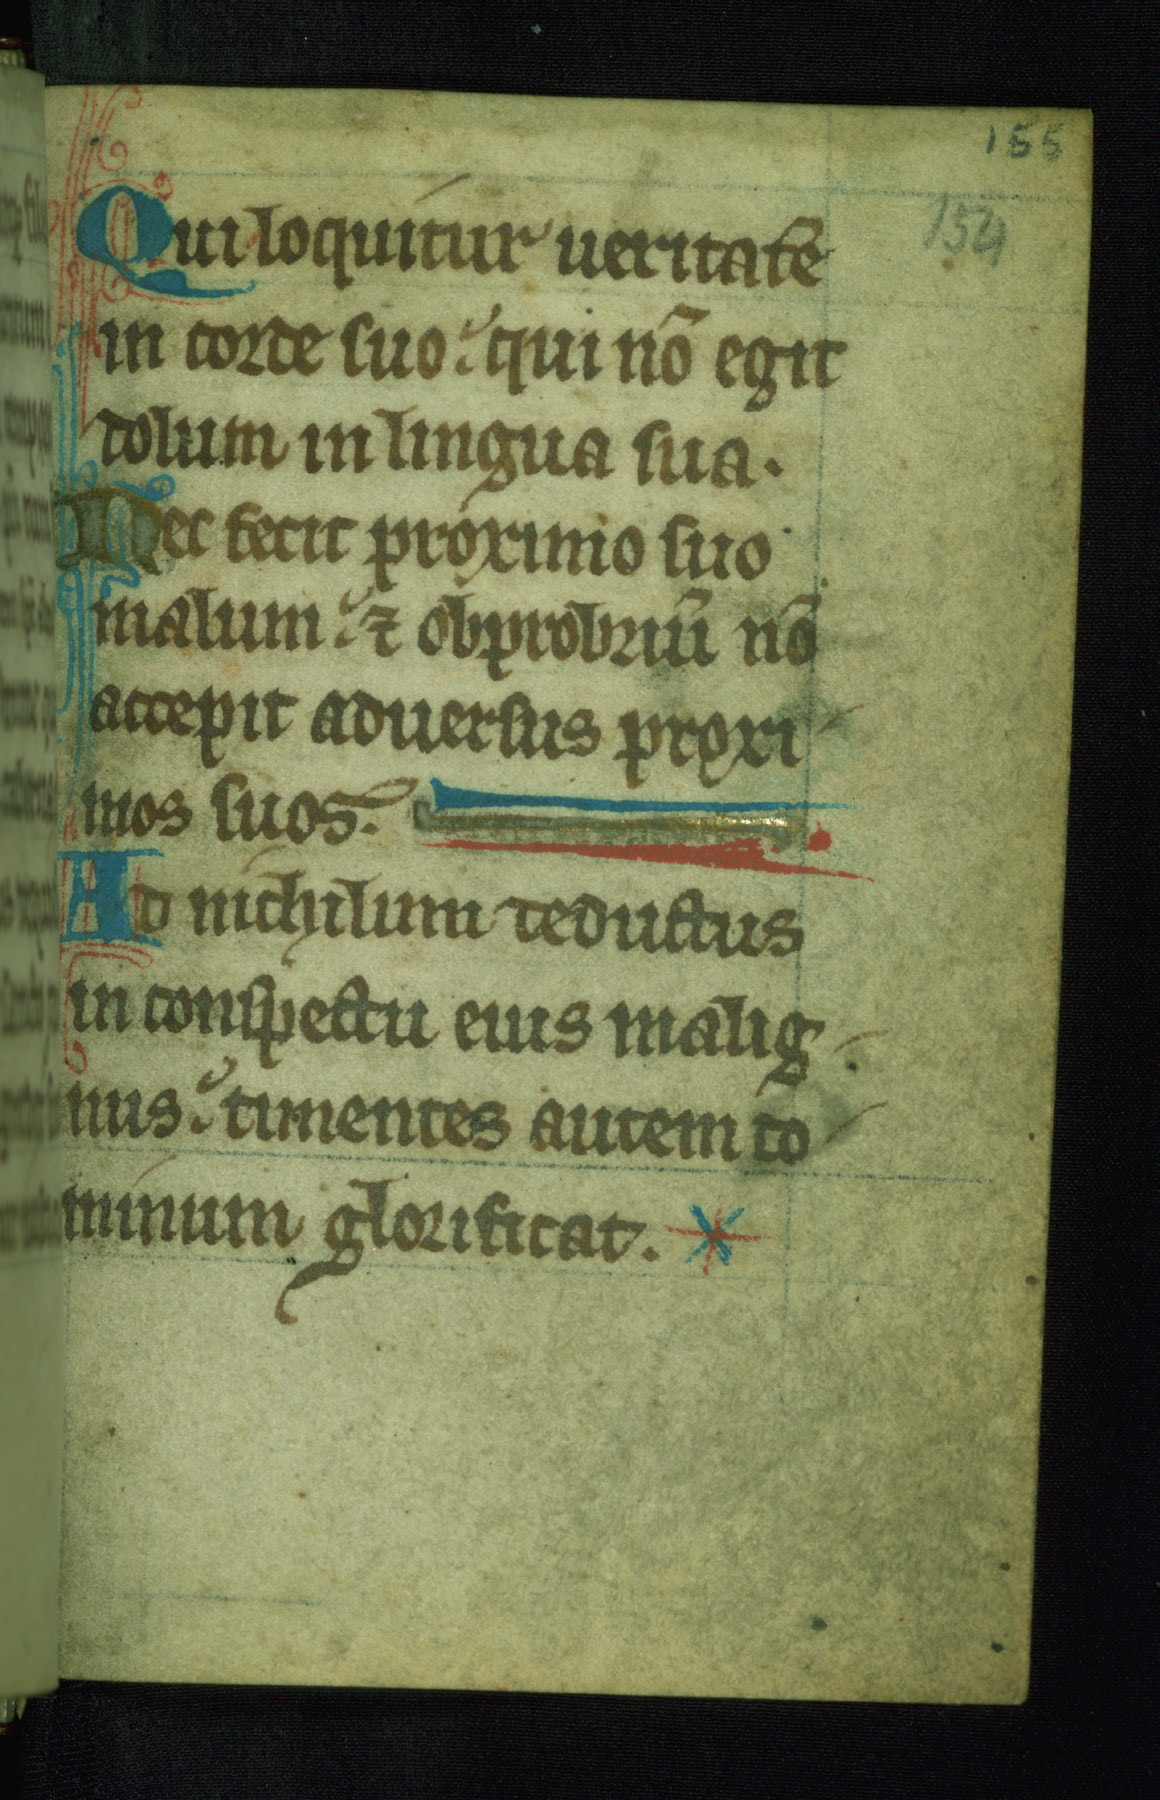 155
154
Qui loquitur ueritatē
in corde suo: qui nō egit
dolum in lingua sua.
Nec fecit proximo suo
malum: ⁊ obprobriū nō
accepit aduersus proxi
mos suos.
Ad nichilum deductus
in conspectu eius malig
nus: timentes autem do
minum glorificat.